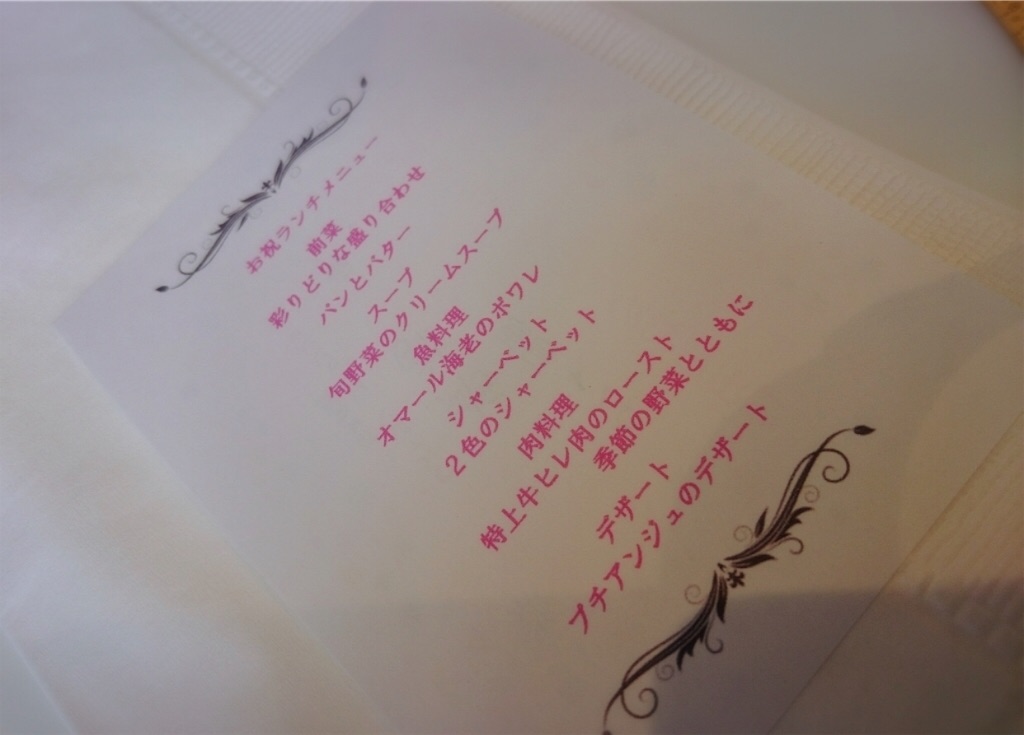 お祝ランチメニュー
前菜
彩りどりな盛り合わせ
パンとバター
スープ
旬野菜のクリームスープ
魚料理
オマール海老のポワレ
シャーベット
２色のシャーベット
肉料理
特上牛ヒレ肉のロースト
季節の野菜とともに
デザート
プチアンジュのデザート